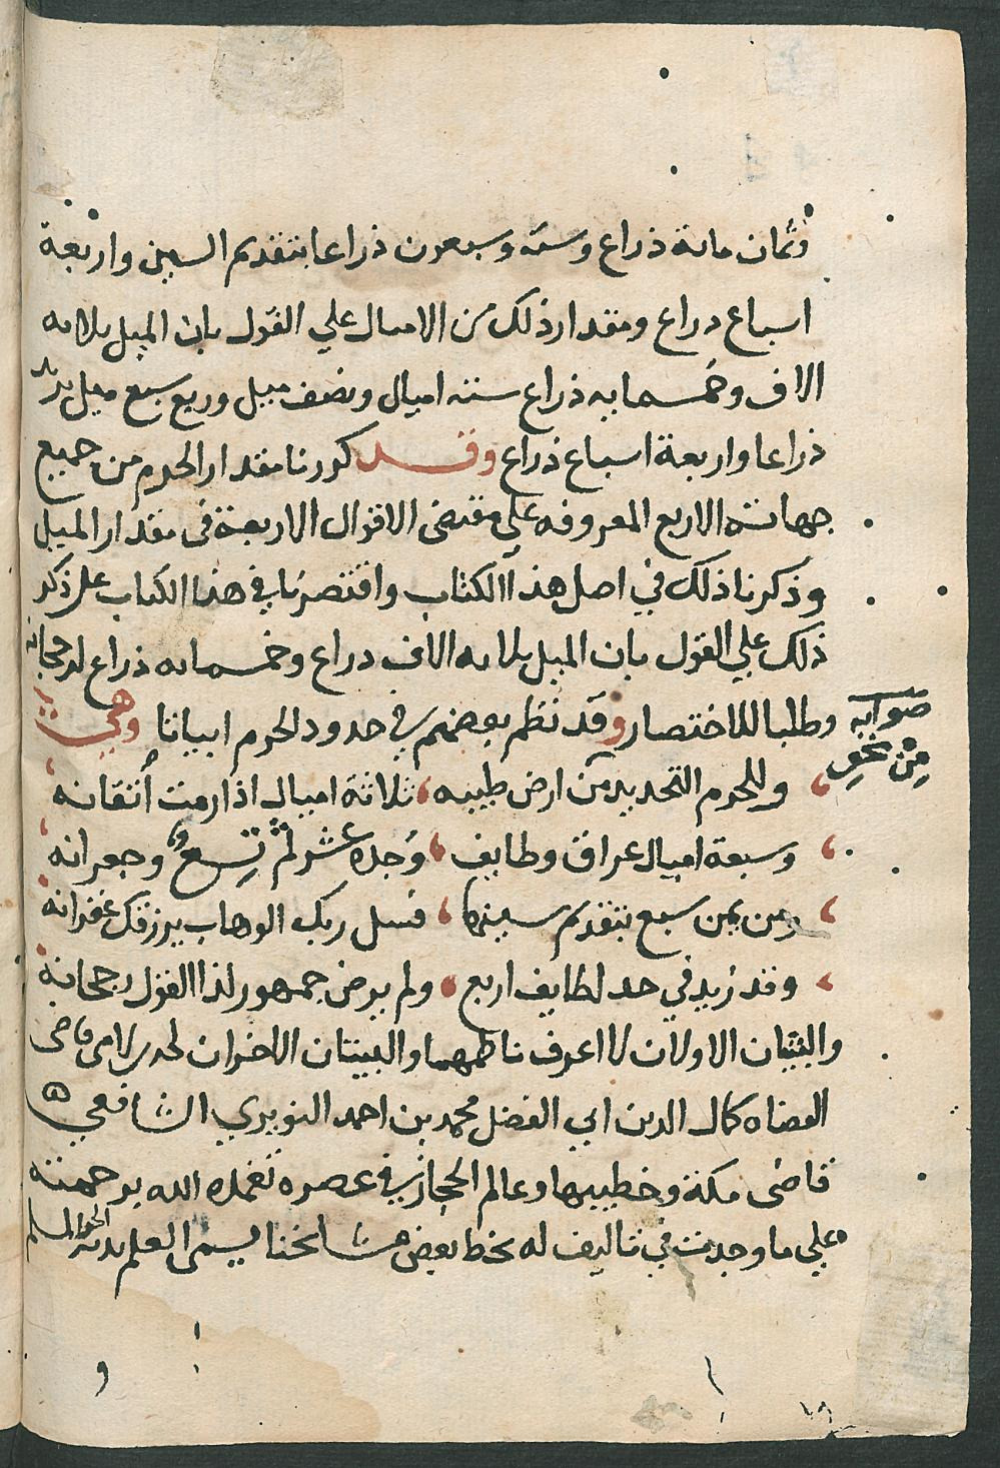 وثمان مائة ذراع وستة وسبعون ذراعا بتقديم السين واربعة
اسباع ذراع ومقدار ذلك من الاميال علي القول بان الميل ثلاثة
الاف وخمسماية ذراع ستة اميال ونصف ميل وربع سبع ميل
ذراعا واربعة اسباع ذراع وقد كررنا مقدار الحرم من جميع
جهاته الاربع المعروفه علي مقتضى الاقوال الاربعة في مقدار الميل
وذكرنا ذلك في اصل هذا الكتاب واقتصرنا في هذا الكتاب على ذكر
ذلك علي القول بان الميل ثلاثه الاف ذراع وخمسمايه ذراع لرجحانه
وطلبا للاختصار وقد نظم بعضهم في حدود الحرم ابياتا وهي
صوابه
من نحو
وللحرم التحديد من ارض طيبه ثلاثة اميال اذا رمت أتقانه
وسبعة اميال عراق وطايف وجده عشر ثم تسع وجعرانه
ومن يمن سبع بتقديم سينها فسل ربك الوهاب يرزقك غفرانه
وقد زيد في حد لطايف اربع ولم يرض جمهور لذا القول رجحانه
والبيتان الاولان لا اعرف ناظمهما والبيتان الاخران لجدي لامي قاضي
القضاه كمال الدين ابي الفضل محمد بن احمد النويري الشافعي
قاضى مكة وخطيبها وعالم الحجاز في عصره تغمده الله برحمته
علي ما وجدت في تاليف له بخط بعض مشايخنا يسمى